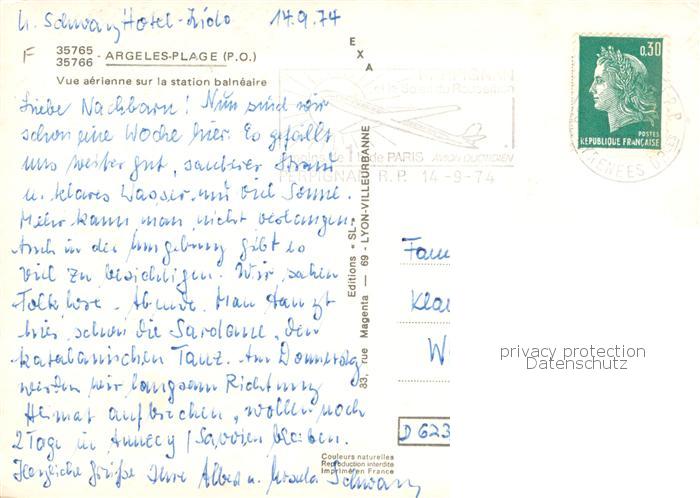 U. Schwarz Hotel-Lido 14.9.74
F 35765
35766 - ARGELES-PLAGE (P.O.)
Vue aérienne sur la station balnéaire
EXA
Liebe Nachbarn! Nun sind wir
schon eine Woche hier. Es gefällt
uns weiter gut, sauberer Strand
u. klares Wasser und viel Sonne.
Mehr kann man nicht verlangen.
Auch in der Umgebung gibt es
viel zu besichtigen. Wir sahen
Folklore-Abende. Man tanzt
hier schon die Sardane, den
katalanischen Tanz. Am Donnerstag
werden wir langsam Richtung
Heimat aufbrechen, wollen noch
2 Tage in Annecy / Savoien bleiben.
Herzliche Grüße Ihre Albert u. Ursula Schwarz
Editions « SL »
83, rue Magenta — 69 - LYON-VILLEURBANNE
Couleurs naturelles
Reproduction interdite
Imprimé en France
PERPIGNAN
et le Soleil du Roussillon
de PARIS AVION QUOTIDIEN
PERPIGNAN R.P. 14-9-74
0,30
POSTES
REPUBLIQUE FRANÇAISE
PYRENEES OR
Fam
Kla
W
D 623
privacy protection
Datenschutz